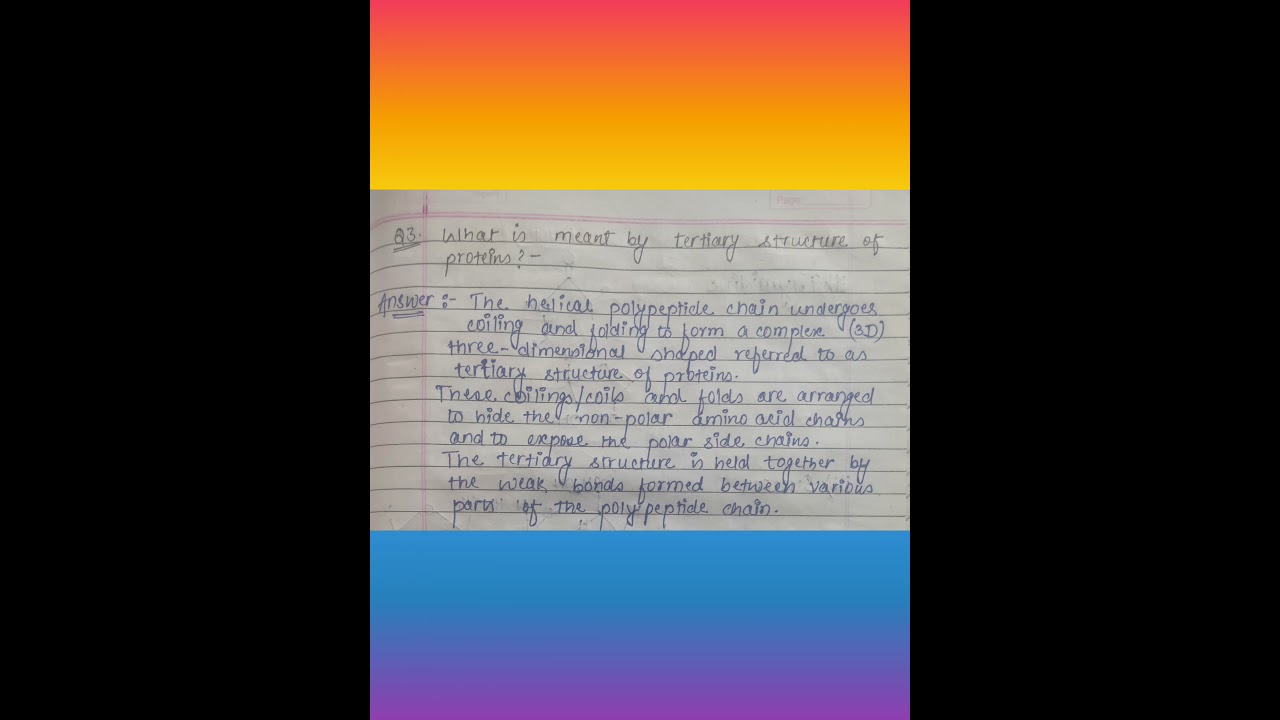 Page:
Q3. What is meant by tertiary structure of
proteins?-
Answer:- The helical polypeptide chain undergoes
coiling and folding to form a complex (3D)
three-dimensional shaped referred to as
tertiary structure of proteins.
These coilings/coils and folds are arranged
to hide the non-polar amino acid chains
and to expose the polar side chains.
The tertiary structure is held together by
the weak bonds formed between various
parts of the polypeptide chain.